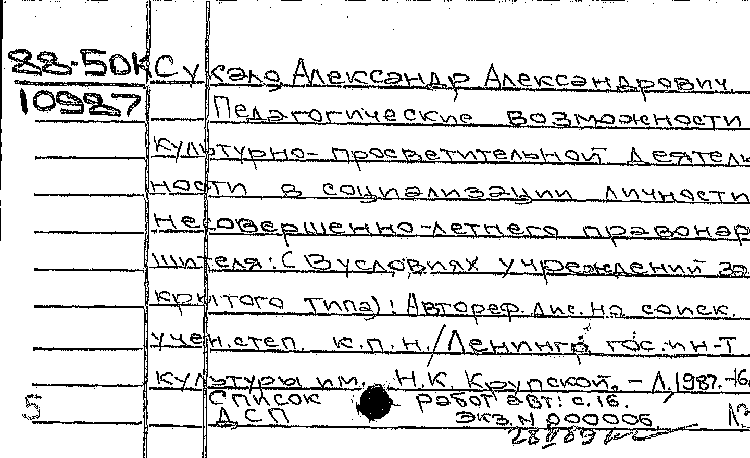 88-50К Сукало Александр Александрович
10987 Педагогические возможности
культурно-просветительной деятель
ности в социализации личности
несовершенно-летнего правонар
шителя: (В условиях учреждений за
крытого типа): Автореф. дис. на соиск.
учен. степ. к.п.н. / Ленингр гос. ин-т
культуры им. Н.К. Крупской. - Л., 1987. - 16
Список работ авт: с. 16.
5 ДСП экз. N 000006 N2